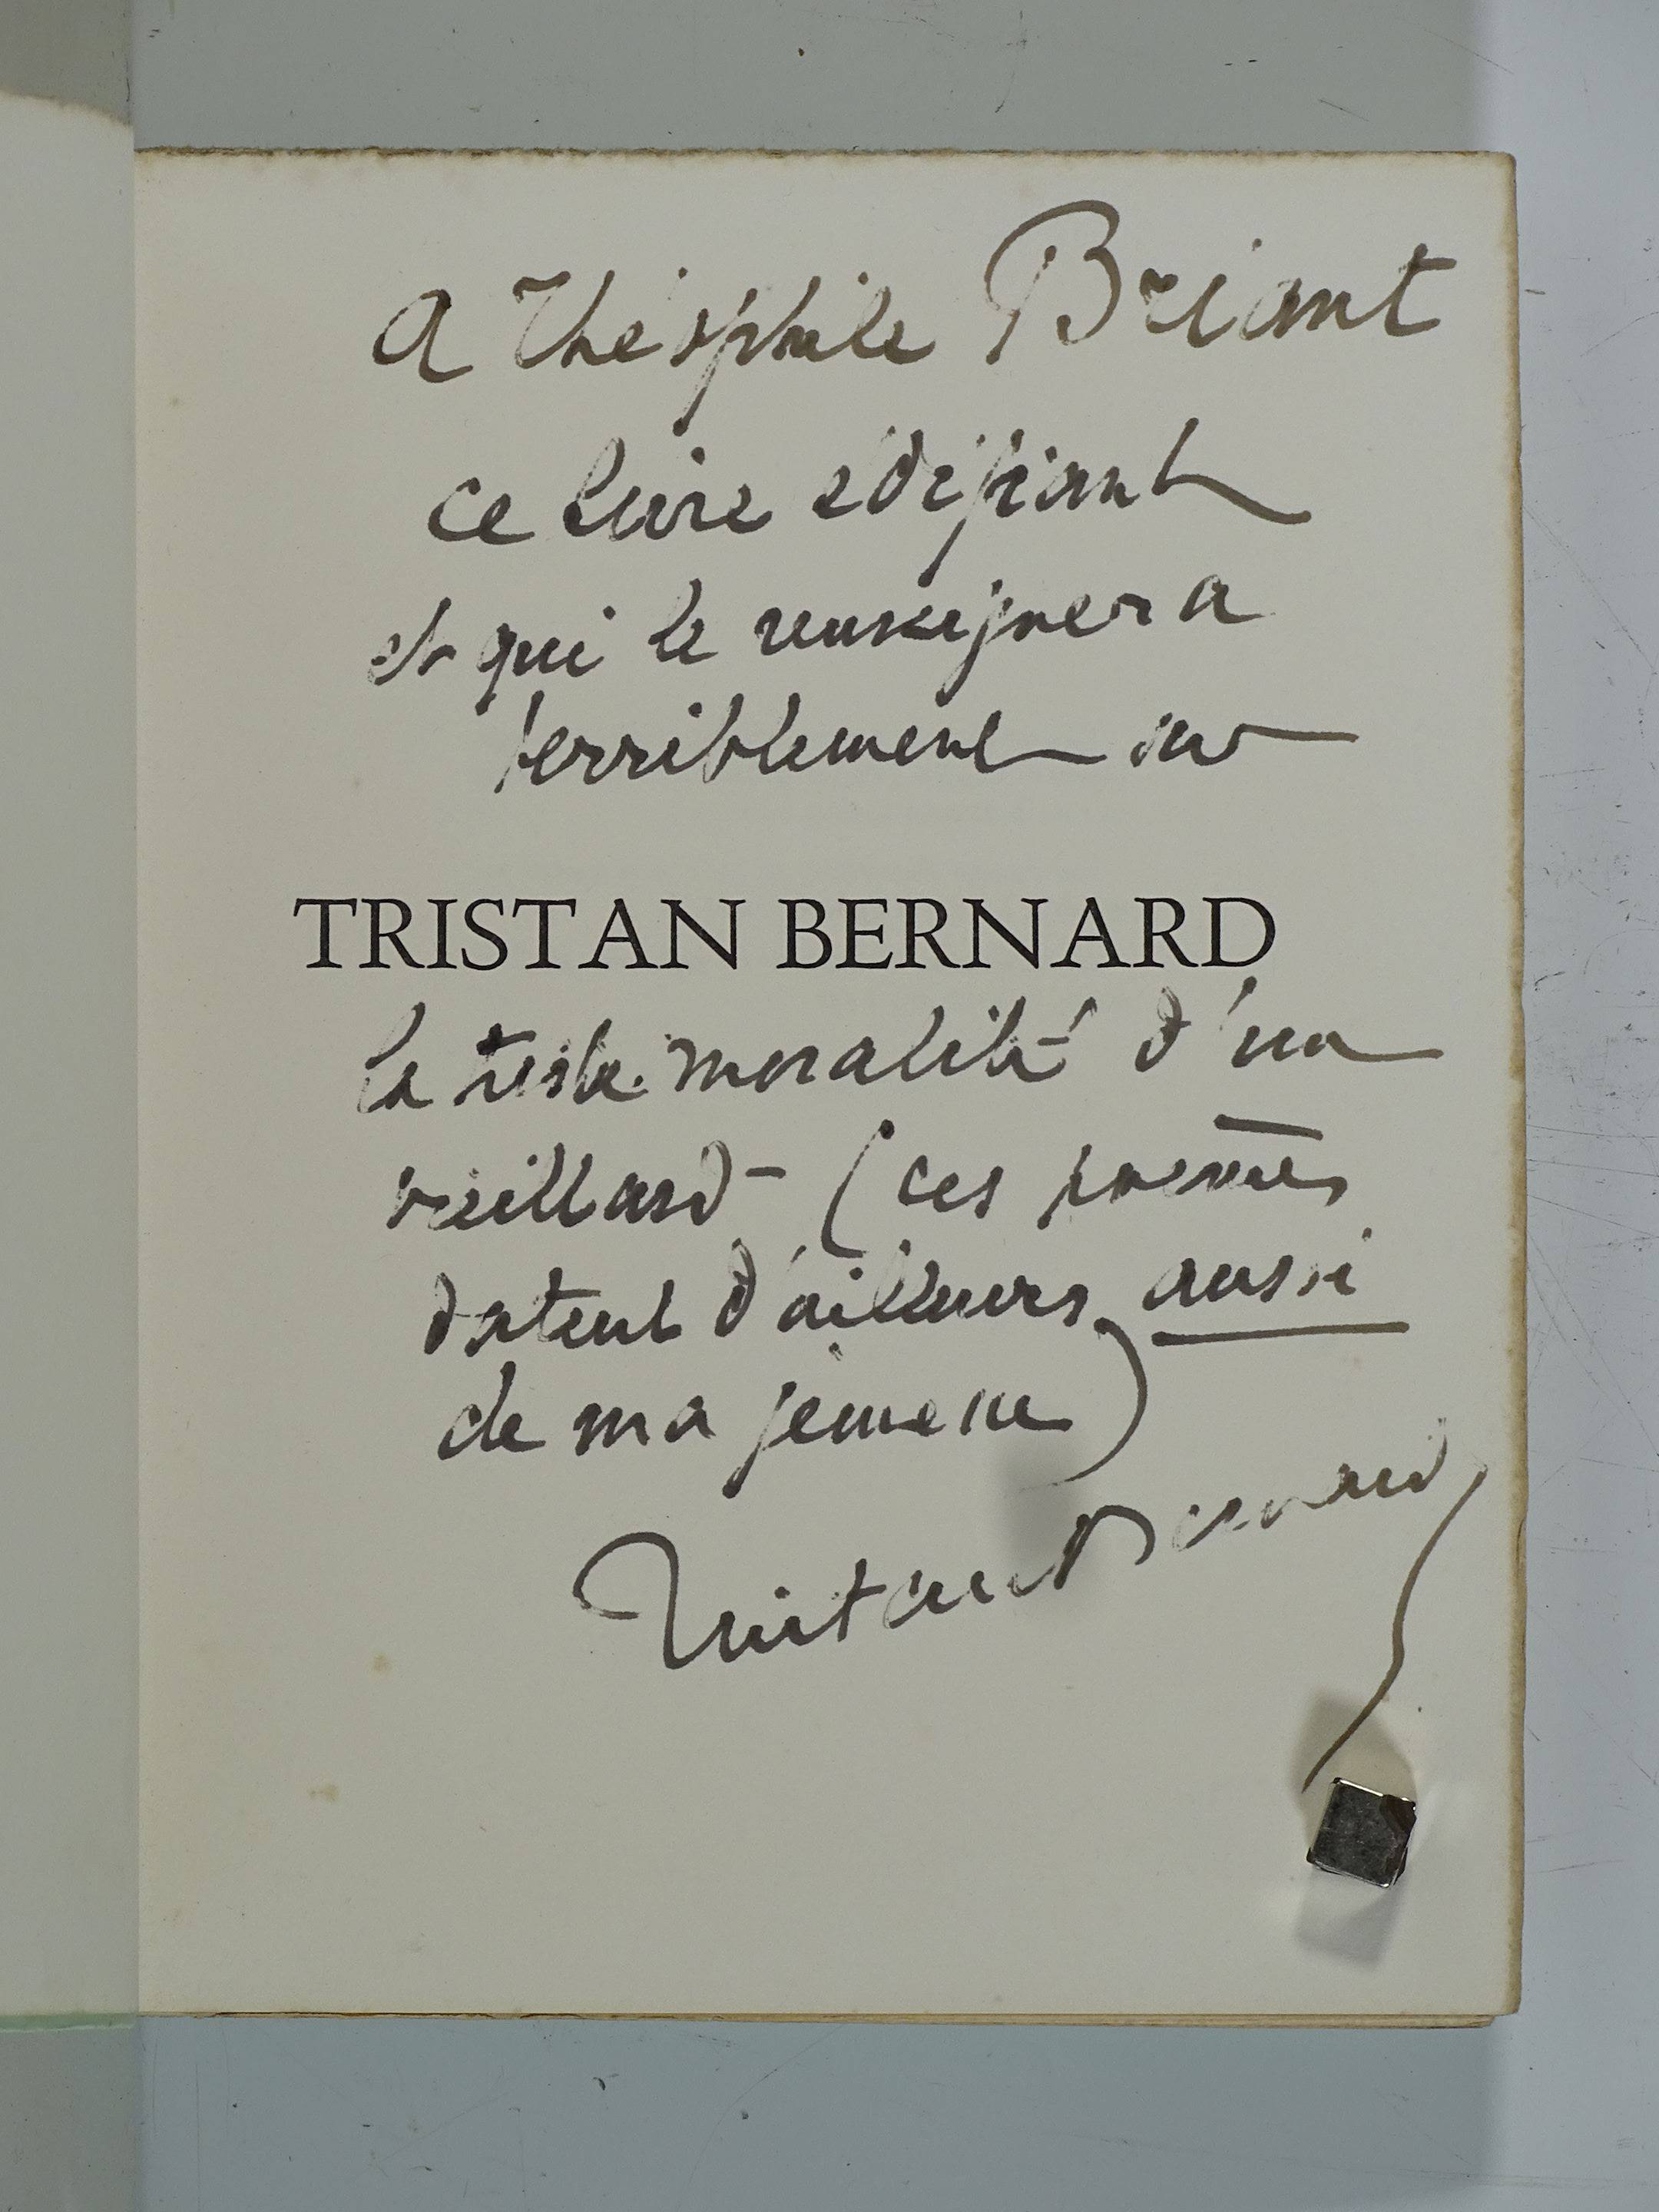 A Théophile Briant
ce livre édifiant
et qui le renseignera
terriblement sur
TRISTAN BERNARD
la triste moralité d'un
vieillard - (ces poèmes
datent d'ailleurs aussi
de ma jeunesse)
Tristan Bernard